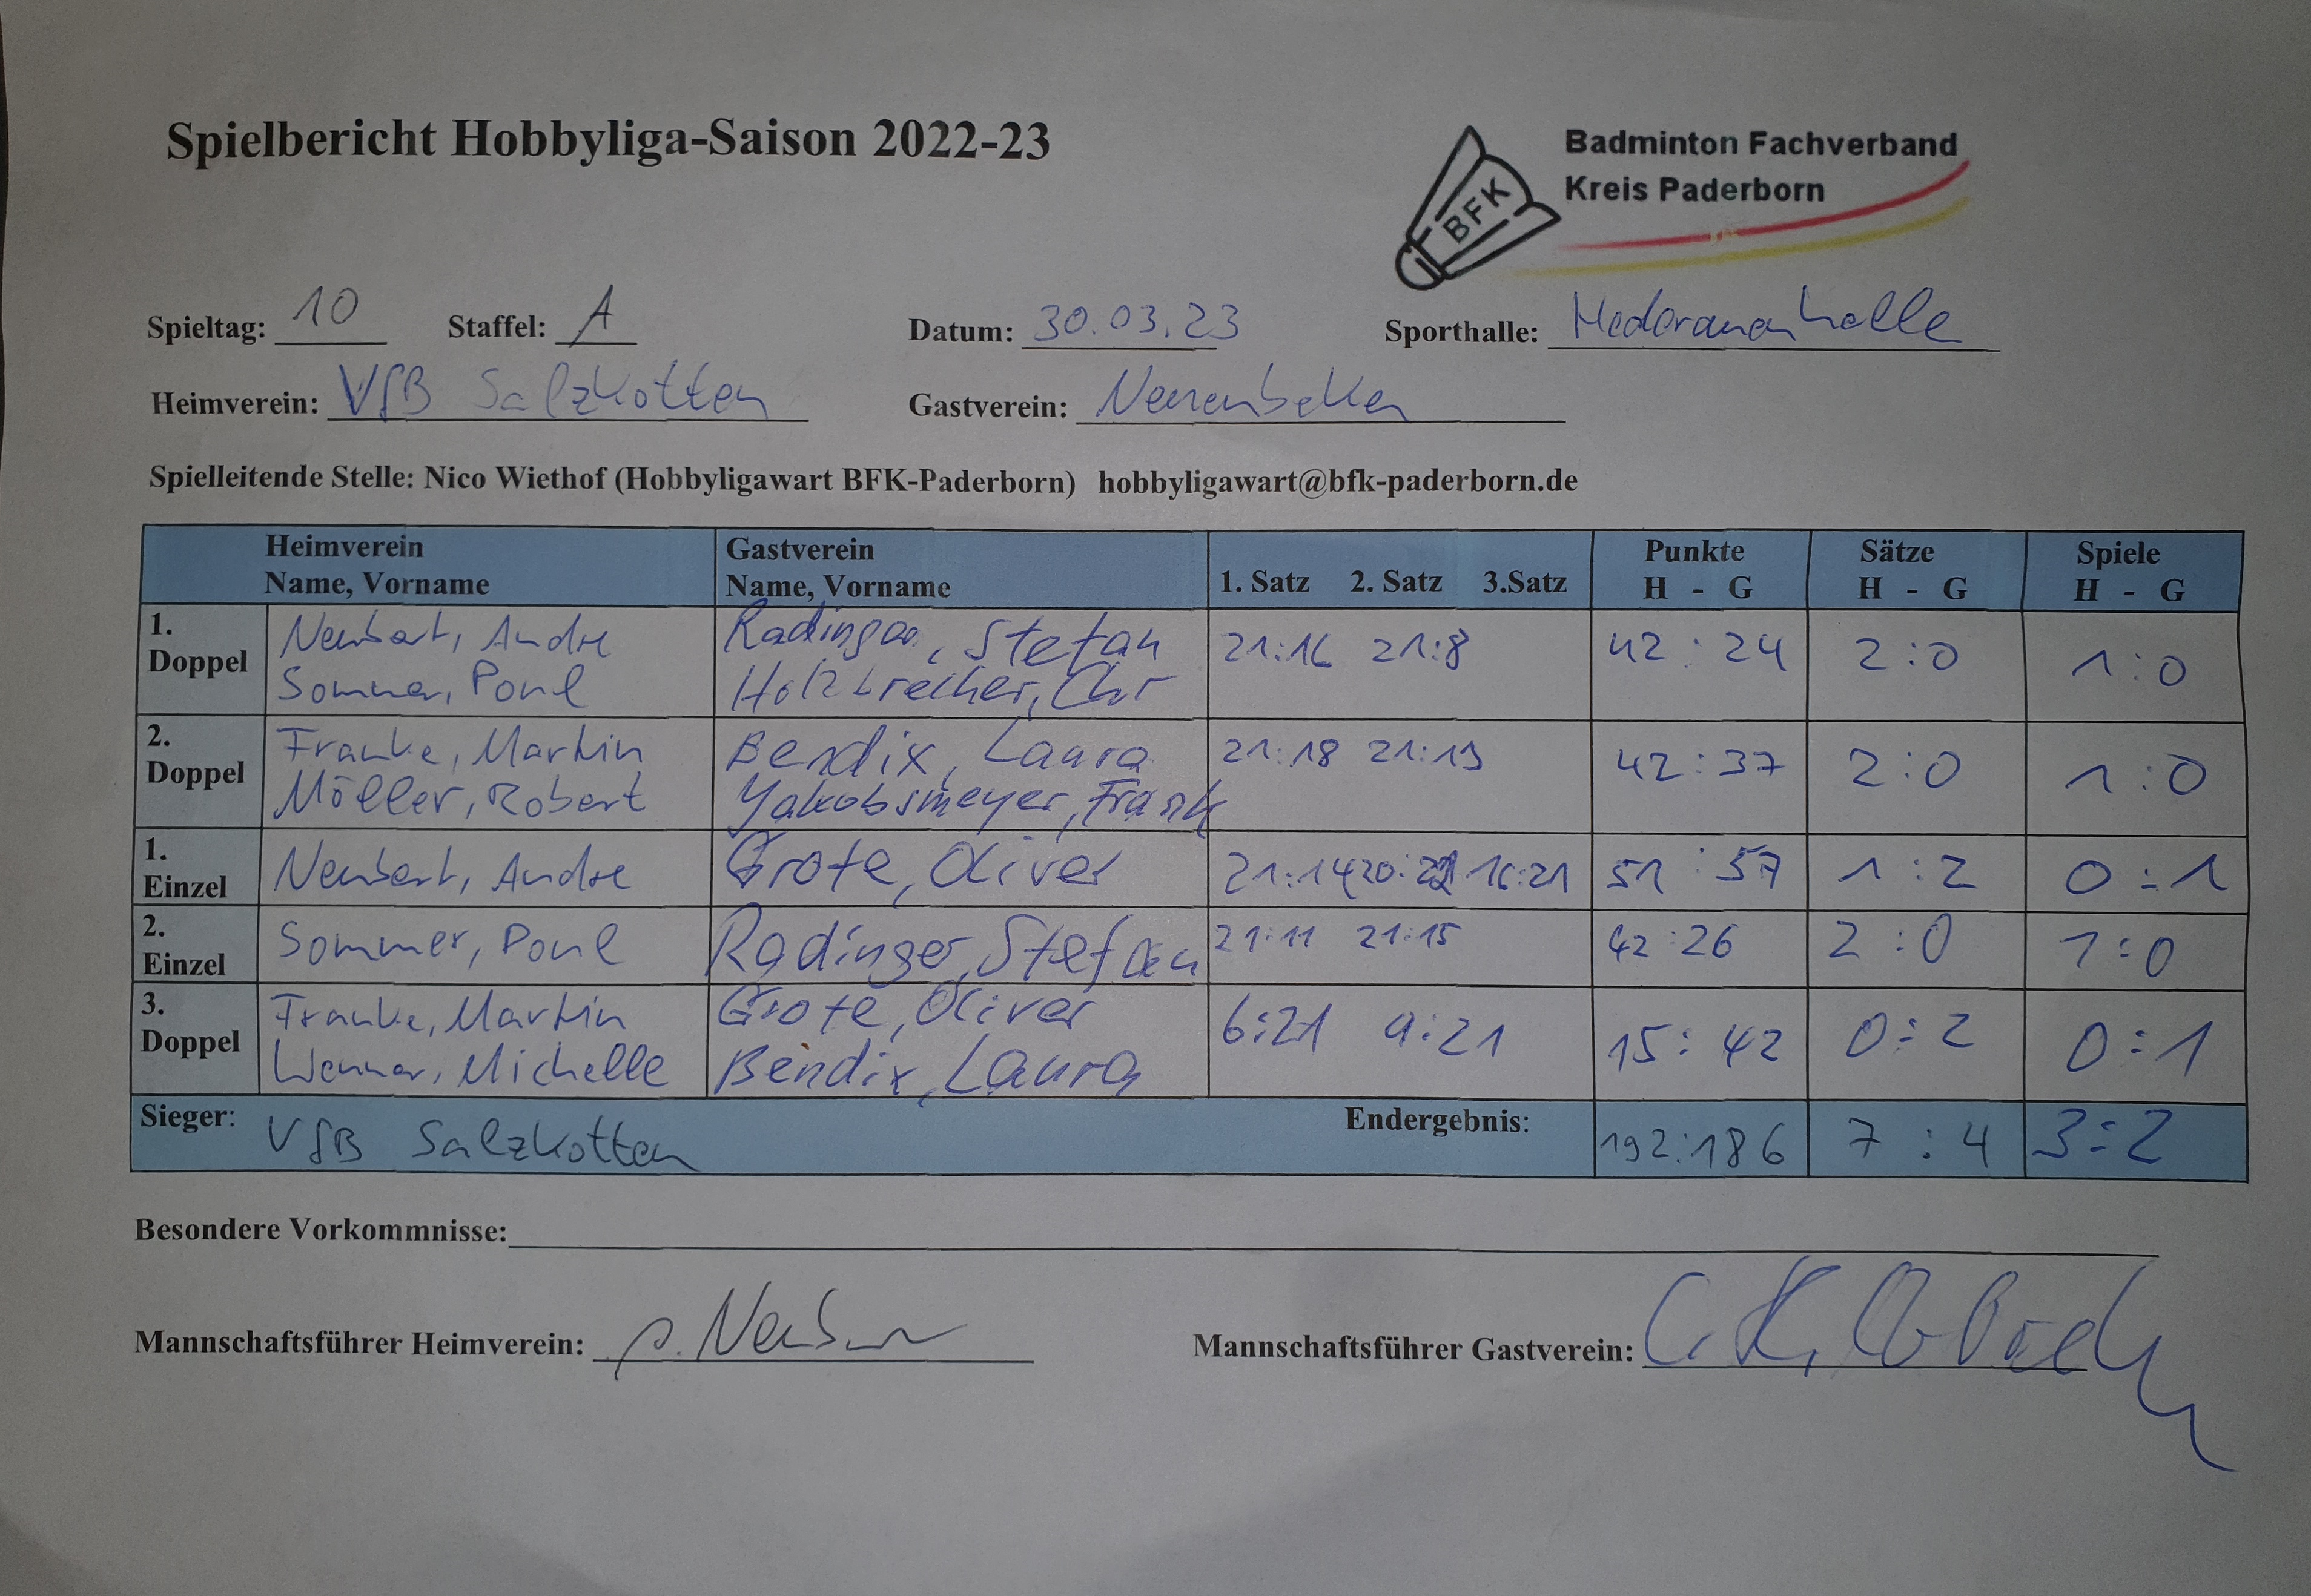 Spielbericht Hobbyliga-Saison 2022-23
Badminton Fachverband
Kreis Paderborn
BFK
Spieltag: 10 Staffel: A Datum: 30.03.23 Sporthalle: Hederauenhalle
Heimverein: VfB Salzkotten Gastverein: Neuenbeken
Spielleitende Stelle: Nico Wiethof (Hobbyligawart BFK-Paderborn) hobbyligawart@bfk-paderborn.de
Heimverein Gastverein Punkte Sätze Spiele
Name, Vorname Name, Vorname 1. Satz 2. Satz 3.Satz H - G H - G H - G
1. Neubert, Andre Radinger, Stefan 21:16 21:8 42:24 2:0 1:0
Doppel Sommer, Poul Holzbrecher, Chr
2. Franke, Martin Bendix, Laura 21:18 21:19 42:37 2:0 1:0
Doppel Möller, Robert Yakobsmeyer, Frank
1. Neubert, Andre Grote, Oliver 21:14 20:22 16:21 51:57 1:2 0:1
Einzel
2. Sommer, Poul Radinger, Stefan 21:11 21:15 42:26 2:0 1:0
Einzel
3. Franke, Martin Grote, Oliver 6:21 9:21 15:42 0:2 0:1
Doppel Wenner, Michelle Bendix, Laura
Sieger: VfB Salzkotten Endergebnis: 192:186 7:4 3:2
Besondere Vorkommnisse:
Mannschaftsführer Heimverein: Mannschaftsführer Gastverein: